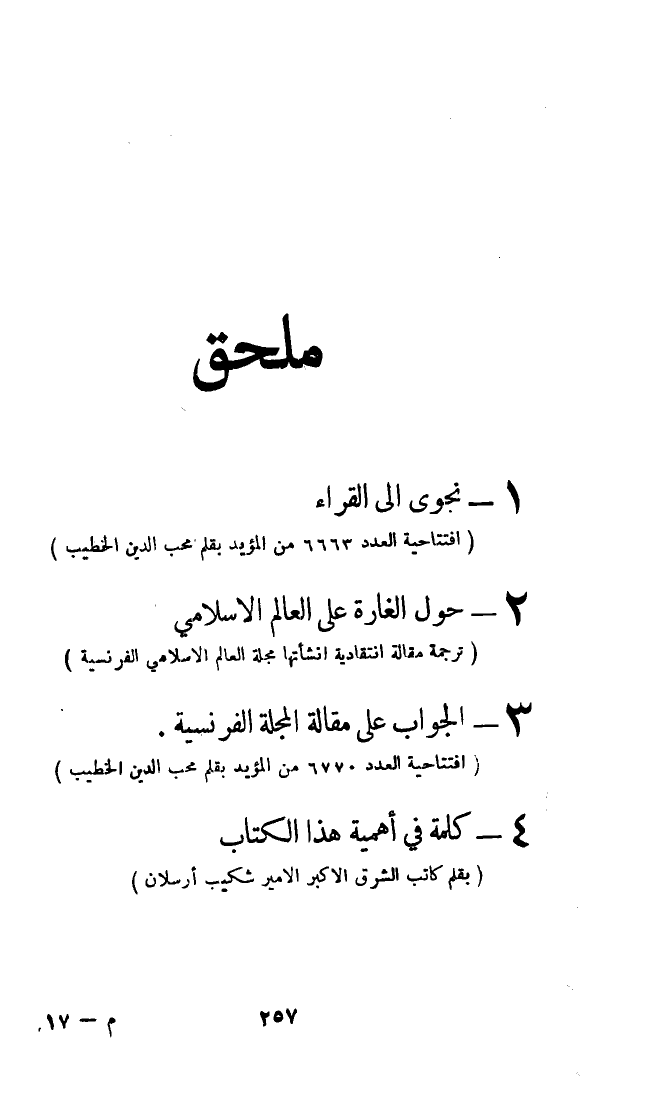 ملحق
١ — نجوى الى القراء
( افتتاحية العدد ٦٦٦٣ من المؤيد بقلم محب الدين الخطيب )
٢ — حول الغارة على العالم الاسلامي
( ترجمة مقالة انتقادية انشأتها مجلة العالم الاسلامي الفرنسية )
٣ — الجواب على مقالة المجلة الفرنسية .
( افتتاحية العدد ٦٧٧٠ من المؤيد بقلم محب الدين الخطيب )
٤ — كلمة في أهمية هذا الكتاب
( بقلم كاتب الشرق الاكبر الامير شكيب أرسلان )
٢٥٧
م — ١٧